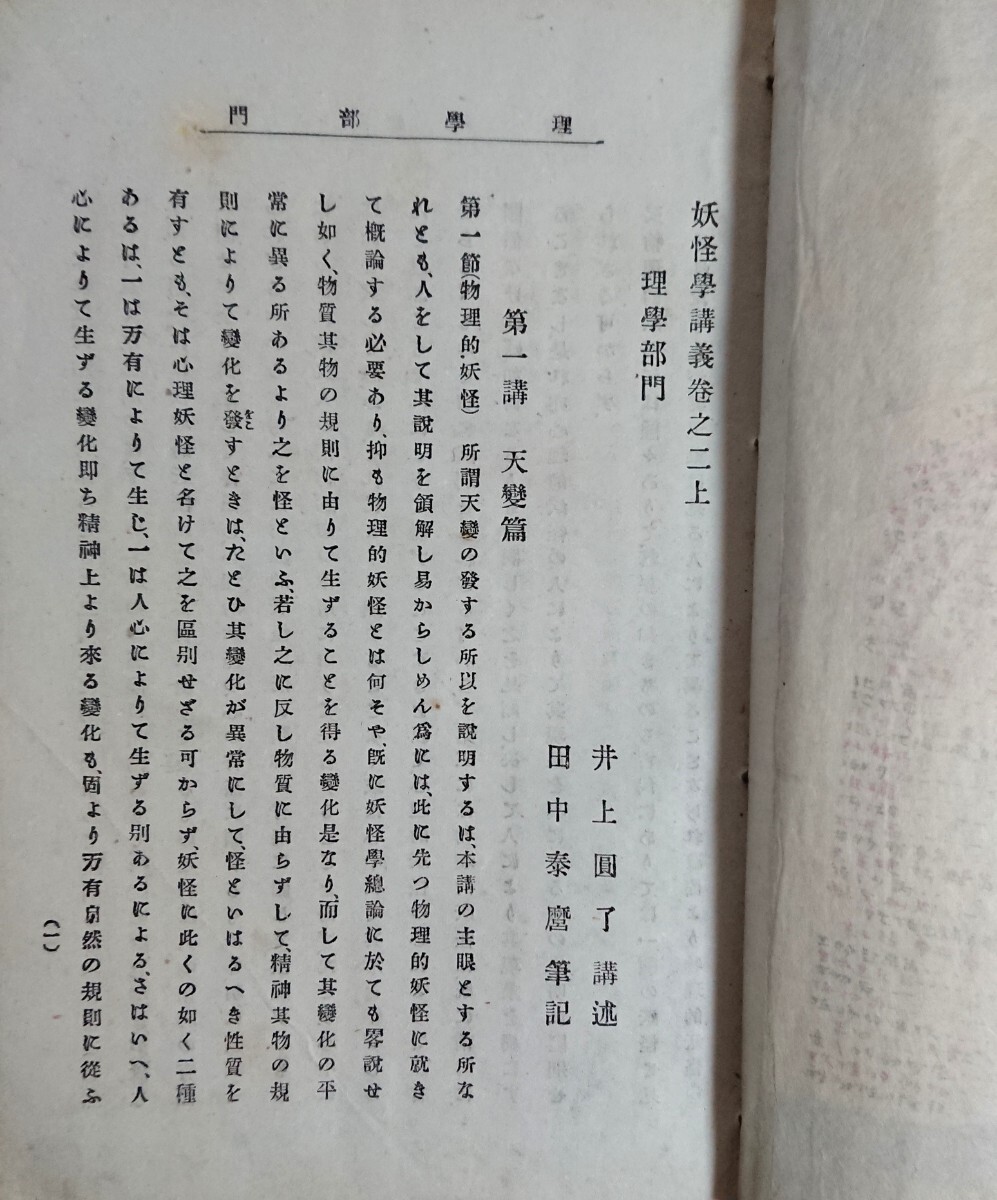 理學部門
妖怪學講義卷之二上
理學部門
井上圓了講述
田中泰麿筆記
第一講　天變篇
第一節(物理的妖怪)　所謂天變の發する所以を說明するは、本講の主眼とする所な
れとも、人をして其說明を領解し易からしめん爲には、此に先つ物理的妖怪に就き
て槪論する必要あり、抑も物理的妖怪とは何そや、旣に妖怪學總論に於ても畧說せ
し如く、物質其物の規則に由りて生ずることを得る變化是なり、而して其變化の平
常に異る所あるより之を怪といふ、若し之に反し物質に由らずして、精神其物の規
則によりて變化を發すときは、たとひ其變化が異常にして、怪といはるへき性質を
有すとも、そは心理妖怪と名けて之を區別せざる可からず、妖怪に此くの如く二種
あるは、一は万有によりて生じ、一は人心によりて生ずる別あるによる、さはいへ、人
心によりて生ずる變化卽ち精神上より來る變化も、固より万有自然の規則に從ふ
(一)